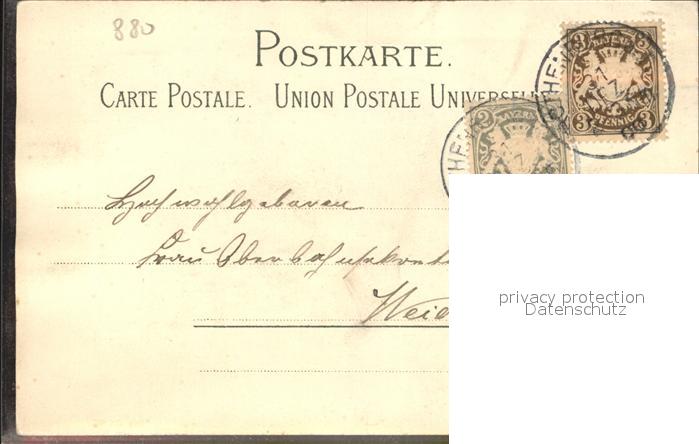 880
POSTKARTE.
CARTE POSTALE. UNION POSTALE UNIVERSELLE
3 BAYERN 3
3 PFENNIG 3
2 BAYERN
Hochwohlgeboren
Frau Oberbahn
Weid
privacy protection
Datenschutz